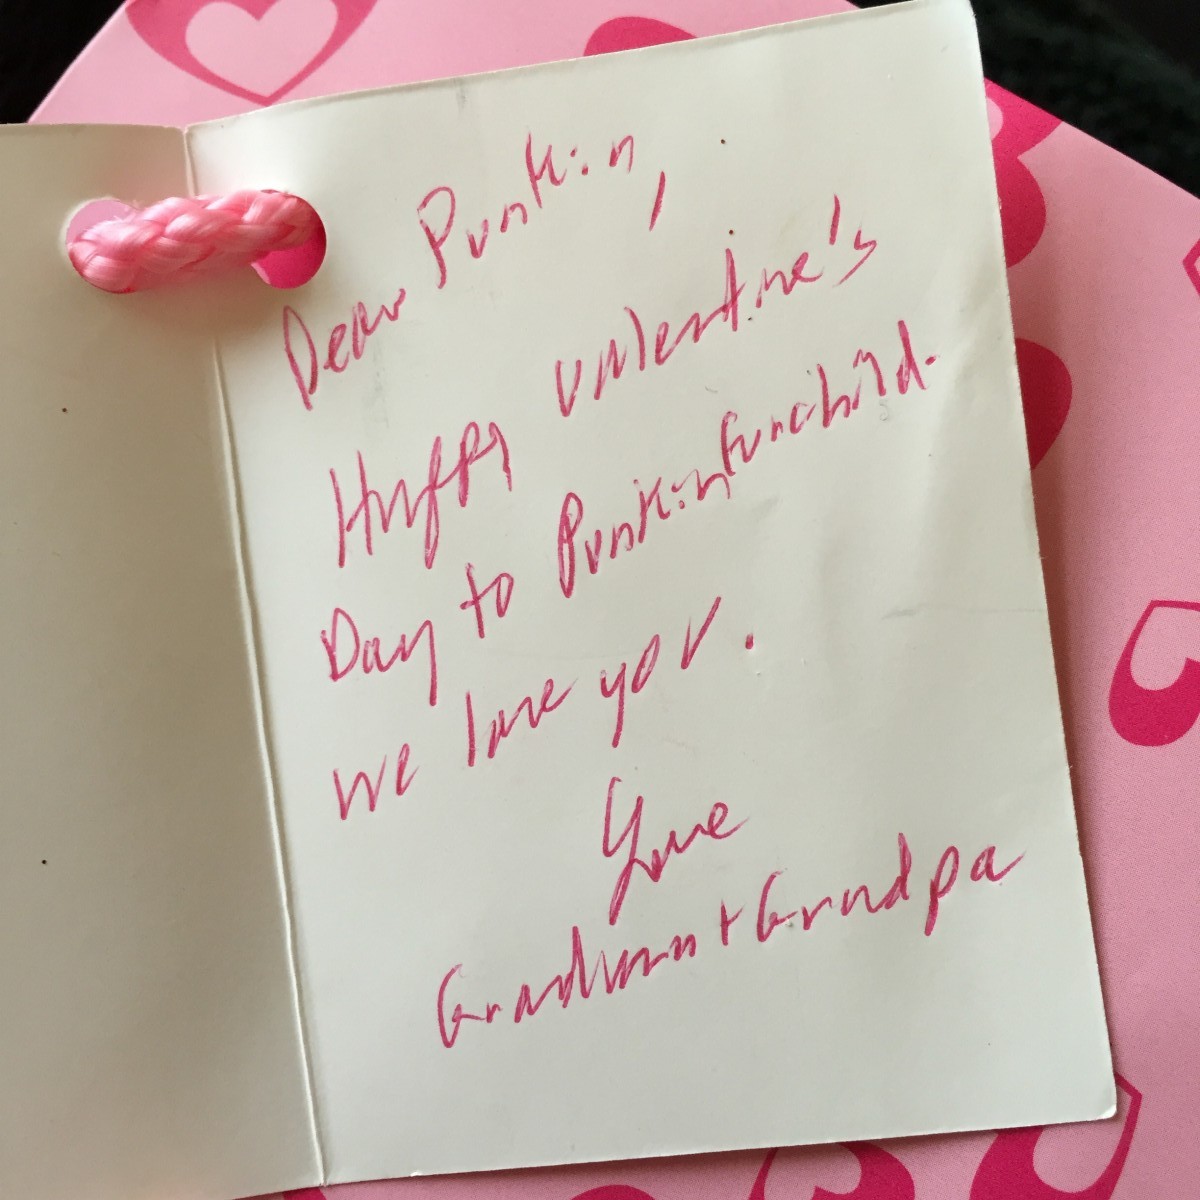 Dear Punkin,
Happy Valentine's
Day to Punkin
we love you.
Love
Grandmom + Grandpa